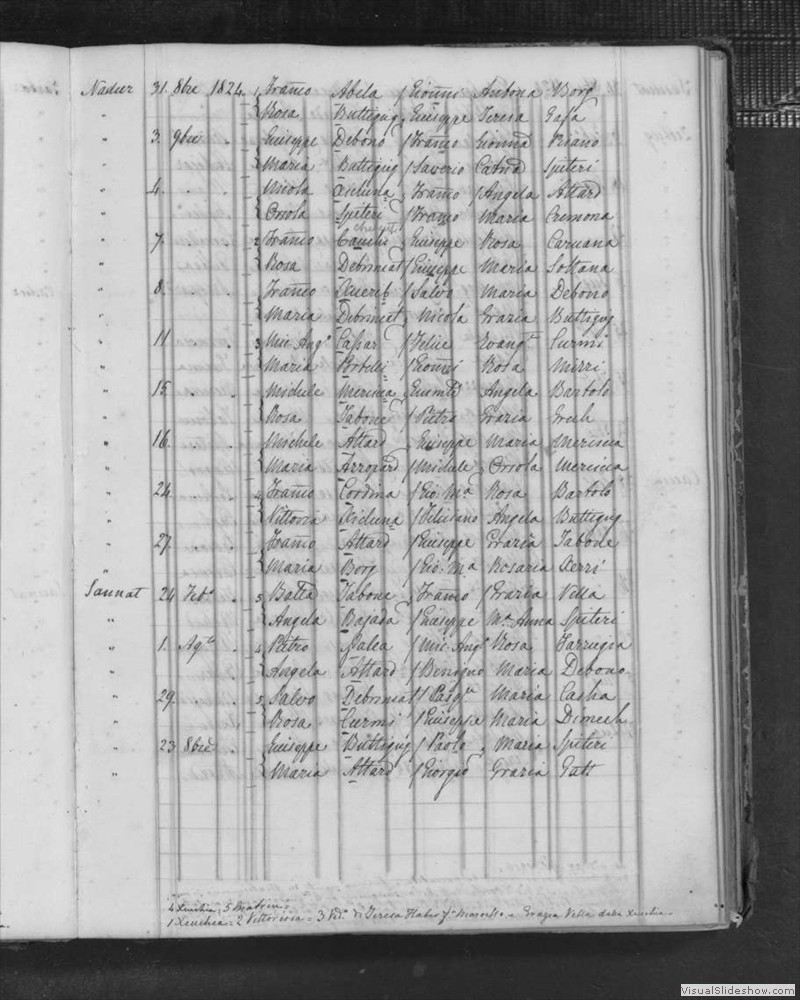 Nadur 31. 8bre 1824. 1 Franco Abela / Gionni Antona Borg
" Rosa Buttigieg, Giuseppe Teresa Gafa
" 3. 9bre Giuseppe Debono / Franco Gionna Pisano
" Maria Buttigieg / Saverio Catna Spiteri
" 4. . . Nicola Xicluna, Franco / Angela Attard
" Orsola Spiteri / Franco Maria Cremona
" 7. . . 2 Franco Giuseppe Rosa Caruana
" Rosa Debrincat / Giuseppe Maria Soltana
" 8. . . Franco Xuerib / Salvo Maria Debono
" Maria Debrincat, Nicola Grazia Buttigieg
" 11. . . 3 Mic. Ango Cassar / Felice Evangta Curmi
" Maria / Gionni Rosa Mizzi
" 15. . . Michele Mercieca Angela Bartolo
" Rosa Tabone / Pietro Grazia Grech
" 16. . . Michele Attard Giuseppe Maria Mercieca
" Maria / Michele, Orsola Mercieca
" 24. . . 4 Franco Cordina / Gio. Ma Rosa Bartolo
" Vittoria Xicluna / Feliciano Angela Buttigieg
" 27. . . Franco Attard / Giuseppe Grazia Tabone
" Maria Borg / Gio. Ma Rosaria Xerri
Sannat 24 Febo . 5 Batta Tabone Franco / Grazia Vella
" Angela Bajada / Giuseppe Ma Anna Spiteri
" 1. Agto . 4 Pietro Galea / Mic. Ango Rosa Farrugia
" Angela Attard / Benigno Maria Debono
" 29. . . 5 Salvo Debrincat / Pasqle Maria Casha
" Rosa Curmi / Giuseppe Maria Dimech
" 23 8bre . Giuseppe Buttigieg / Paolo, Maria Spiteri
" Maria Attard / Giorgio Grazia Gatt
4 Xeuchia; 5 Matrice
1 Xeuchia = 2 Vittoriosa = 3 Ved.a di Teresa e Grazia Vella della Xeuchia
VisualSlideshow.com